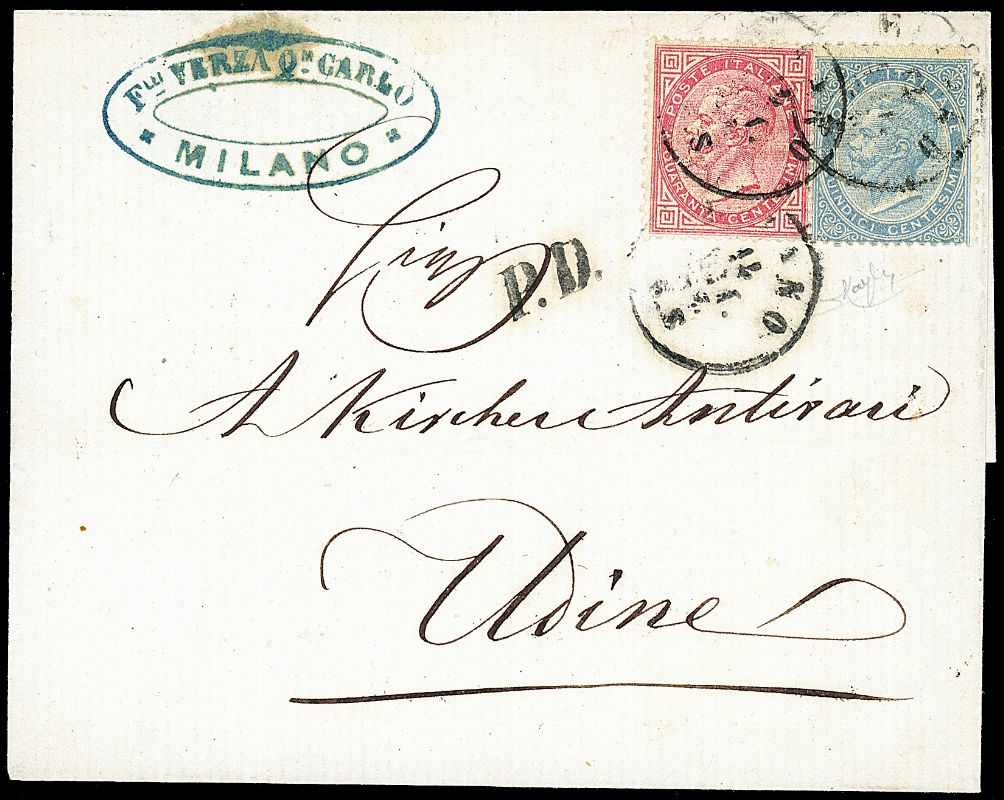 Flli VERZA Qm CARLO
MILANO
POSTE ITALIANE
QUARANTA CENTESIMI
QUINDICI CENTESIMI
P.D.
A Kircher Antivari
Udine